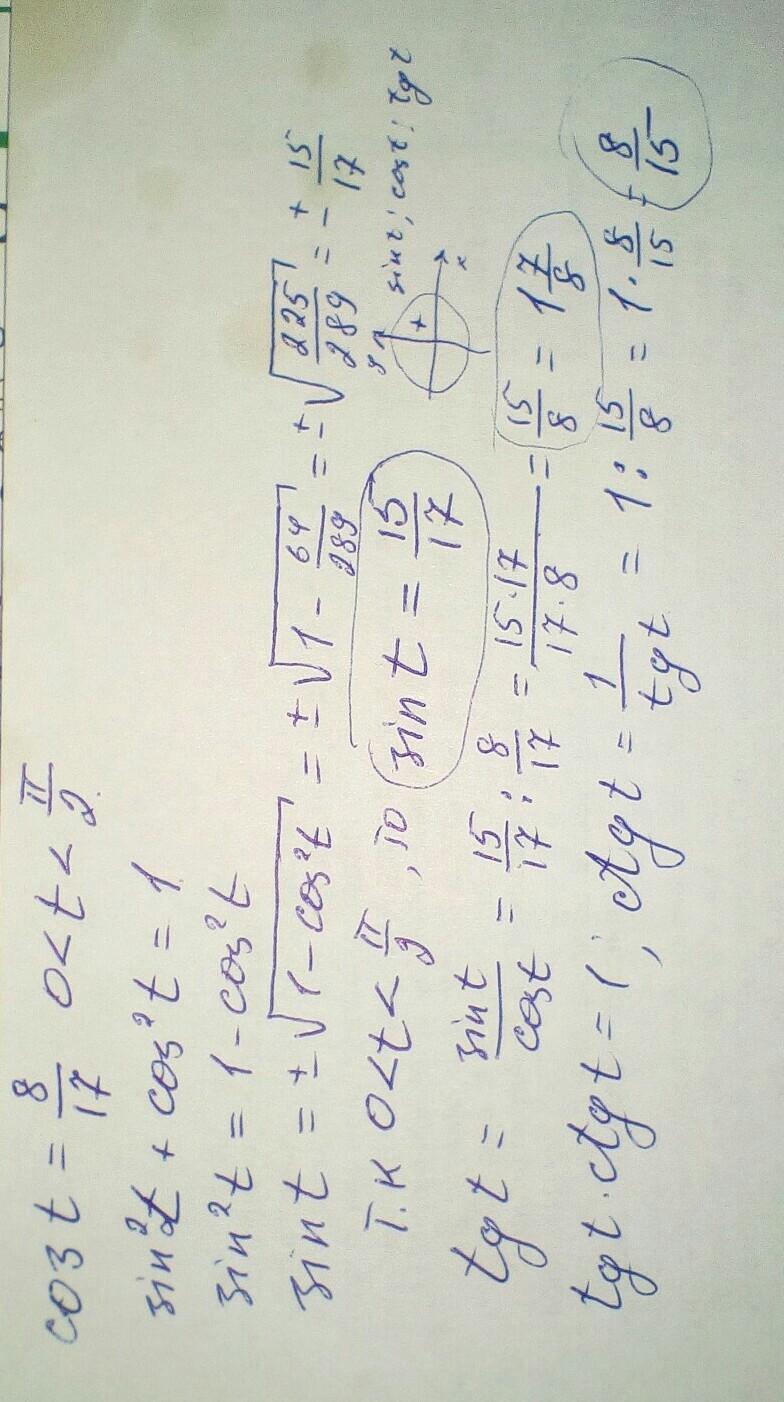 cos t = 8/17   0 < t < π/2
sin²t + cos²t = 1
sin²t = 1 - cos²t
sin t = ±√(1 - cos²t) = ±√(1 - 64/289) = ±√(225/289) = ± 15/17
т.к 0 < t < π/2, то sin t = 15/17
y
+
x
sin t; cos t; tg t
tg t = sin t/cos t = 15/17 : 8/17 = 15·17/17·8 = 15/8 = 1 7/8
tg t · ctg t = 1; ctg t = 1/tg t = 1 : 15/8 = 1 · 8/15 = 8/15